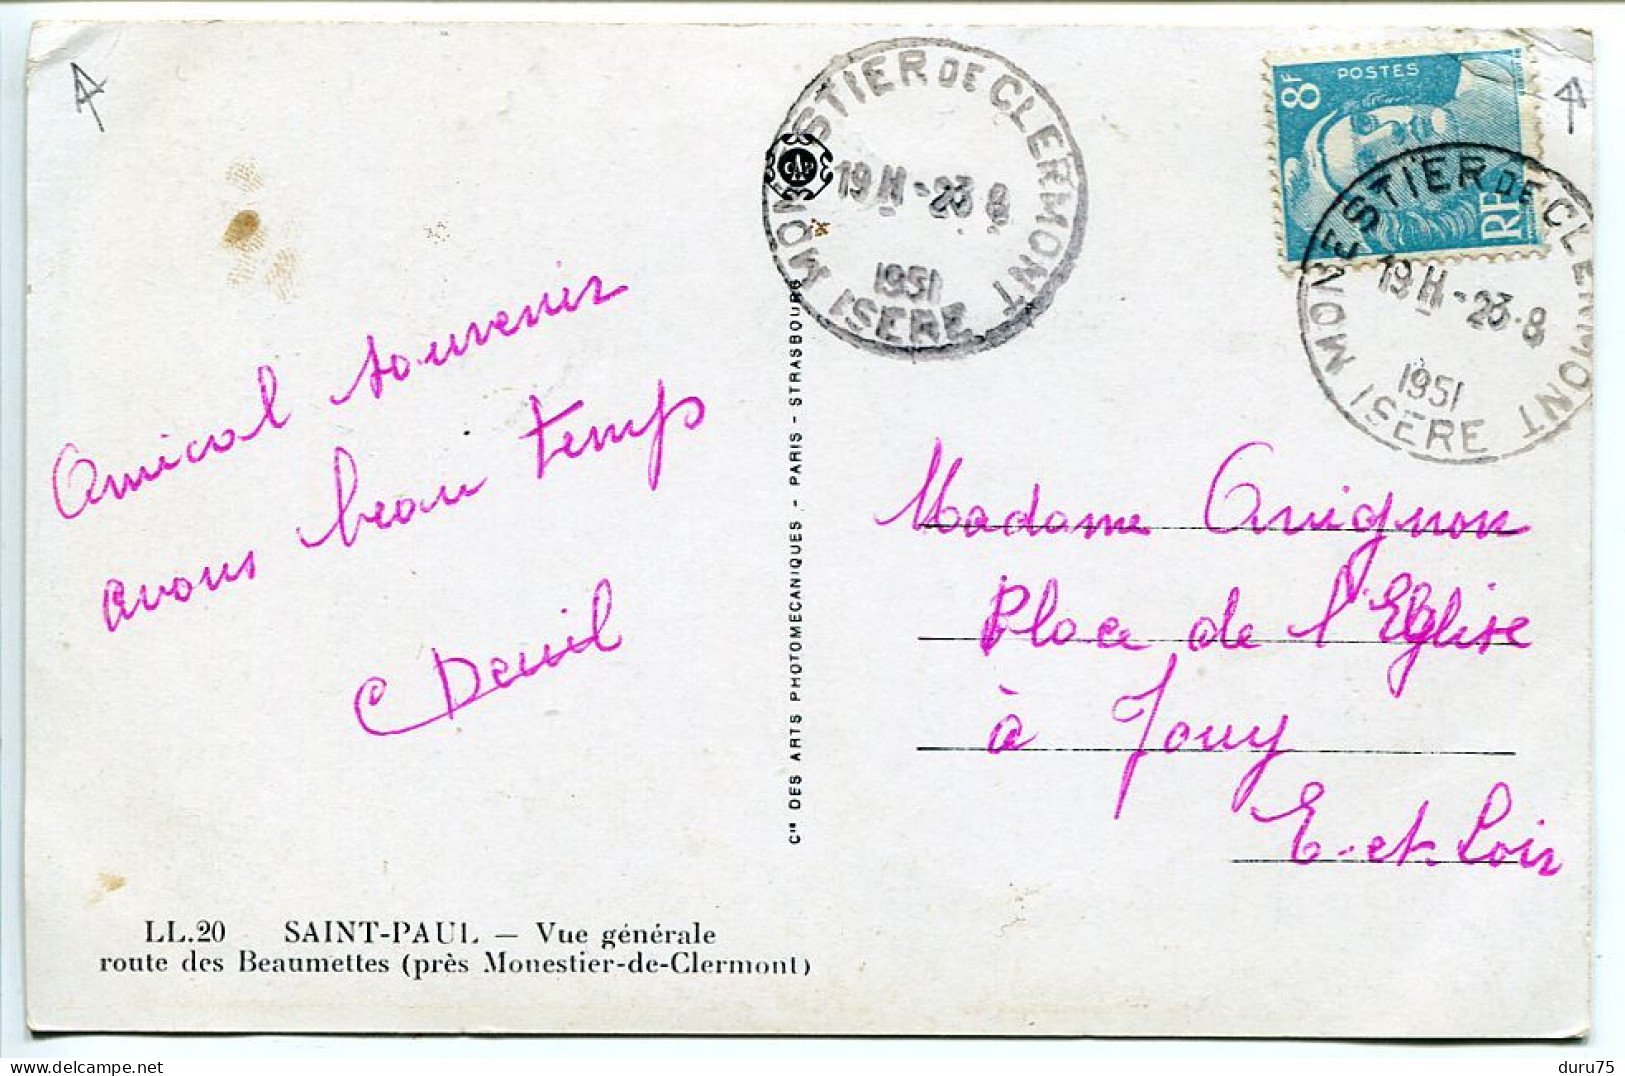 Amical souvenir
avons beau temps
C Deuil
LL.20 SAINT-PAUL — Vue générale
route des Beaumettes (près Monestier-de-Clermont)
Cie DES ARTS PHOTOMECANIQUES - PARIS - STRASBOURG
CAP
MONESTIER DE CLERMONT
19 H - 23 8
1951
ISERE
8F
POSTES
RF
MONESTIER DE CLERMONT
19 H - 23 . 8
1951
ISERE
Madame Avignon
Place de l'Eglise
à Jouy
E.-et-Loir
duru75